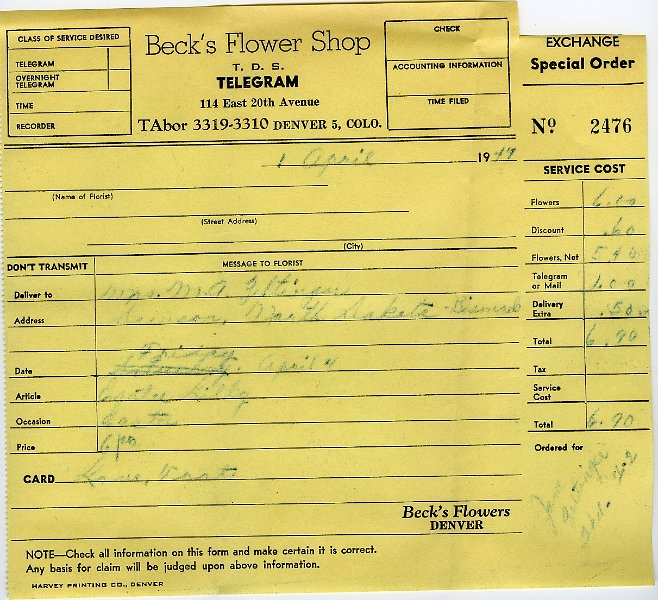 CLASS OF SERVICE DESIRED
TELEGRAM
OVERNIGHT TELEGRAM
TIME
RECORDER
Beck's Flower Shop
T. D. S.
TELEGRAM
114 East 20th Avenue
TAbor 3319-3310 DENVER 5, COLO.
CHECK
ACCOUNTING INFORMATION
TIME FILED
1 April 19
(Name of Florist)
(Street Address)
(City)
DON'T TRANSMIT MESSAGE TO FLORIST
Deliver to Mrs. M.A.
Address North Dakota
Friday
Date April 4
Article Easter Lily
Occasion Easter
Price 6.00
CARD Love,
Beck's Flowers
DENVER
NOTE—Check all information on this form and make certain it is correct.
Any basis for claim will be judged upon above information.
HARVEY PRINTING CO., DENVER
EXCHANGE
Special Order
No. 2476
SERVICE COST
Flowers 6.00
Discount .60
Flowers, Net 5.40
Telegram or Mail 1.00
Delivery Extra .50
Total 6.90
Tax
Service Cost
Total 6.90
Ordered for